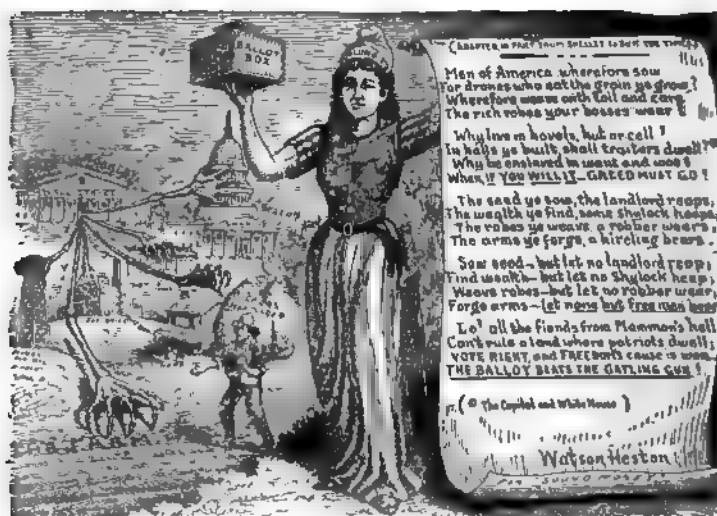 BALLOT
BOX
(ADAPTED IN PART FROM SHELLEY TO SUIT THE TIMES)
Men of America, wherefore sow
For drones who eat the grain ye grow?
Wherefore weave with toil and care
The rich robes your bosses wear?
Why live in hovels, hut or cell?
In halls ye built, shall traitors dwell?
Why be enslaved in want and woe?
When IF YOU WILL IT—GREED MUST GO!
The seed ye sow, the landlord reaps,
The wealth ye find, some shylock heaps,
The robes ye weave, a robber wears,
The arms ye forge, a hireling bears.
Sow seed—but let no landlord reap;
Find wealth—but let no Shylock heap;
Weave robes—but let no robber wear;
Forge arms—let none but free men bear
Lo! all the fiends from Mammon's hell
Can't rule a land where patriots dwell;
VOTE RIGHT, and FREEDOM'S cause is won—
THE BALLOT BEATS THE GATLING GUN!
(The Capitol and White House)
Watson Heston